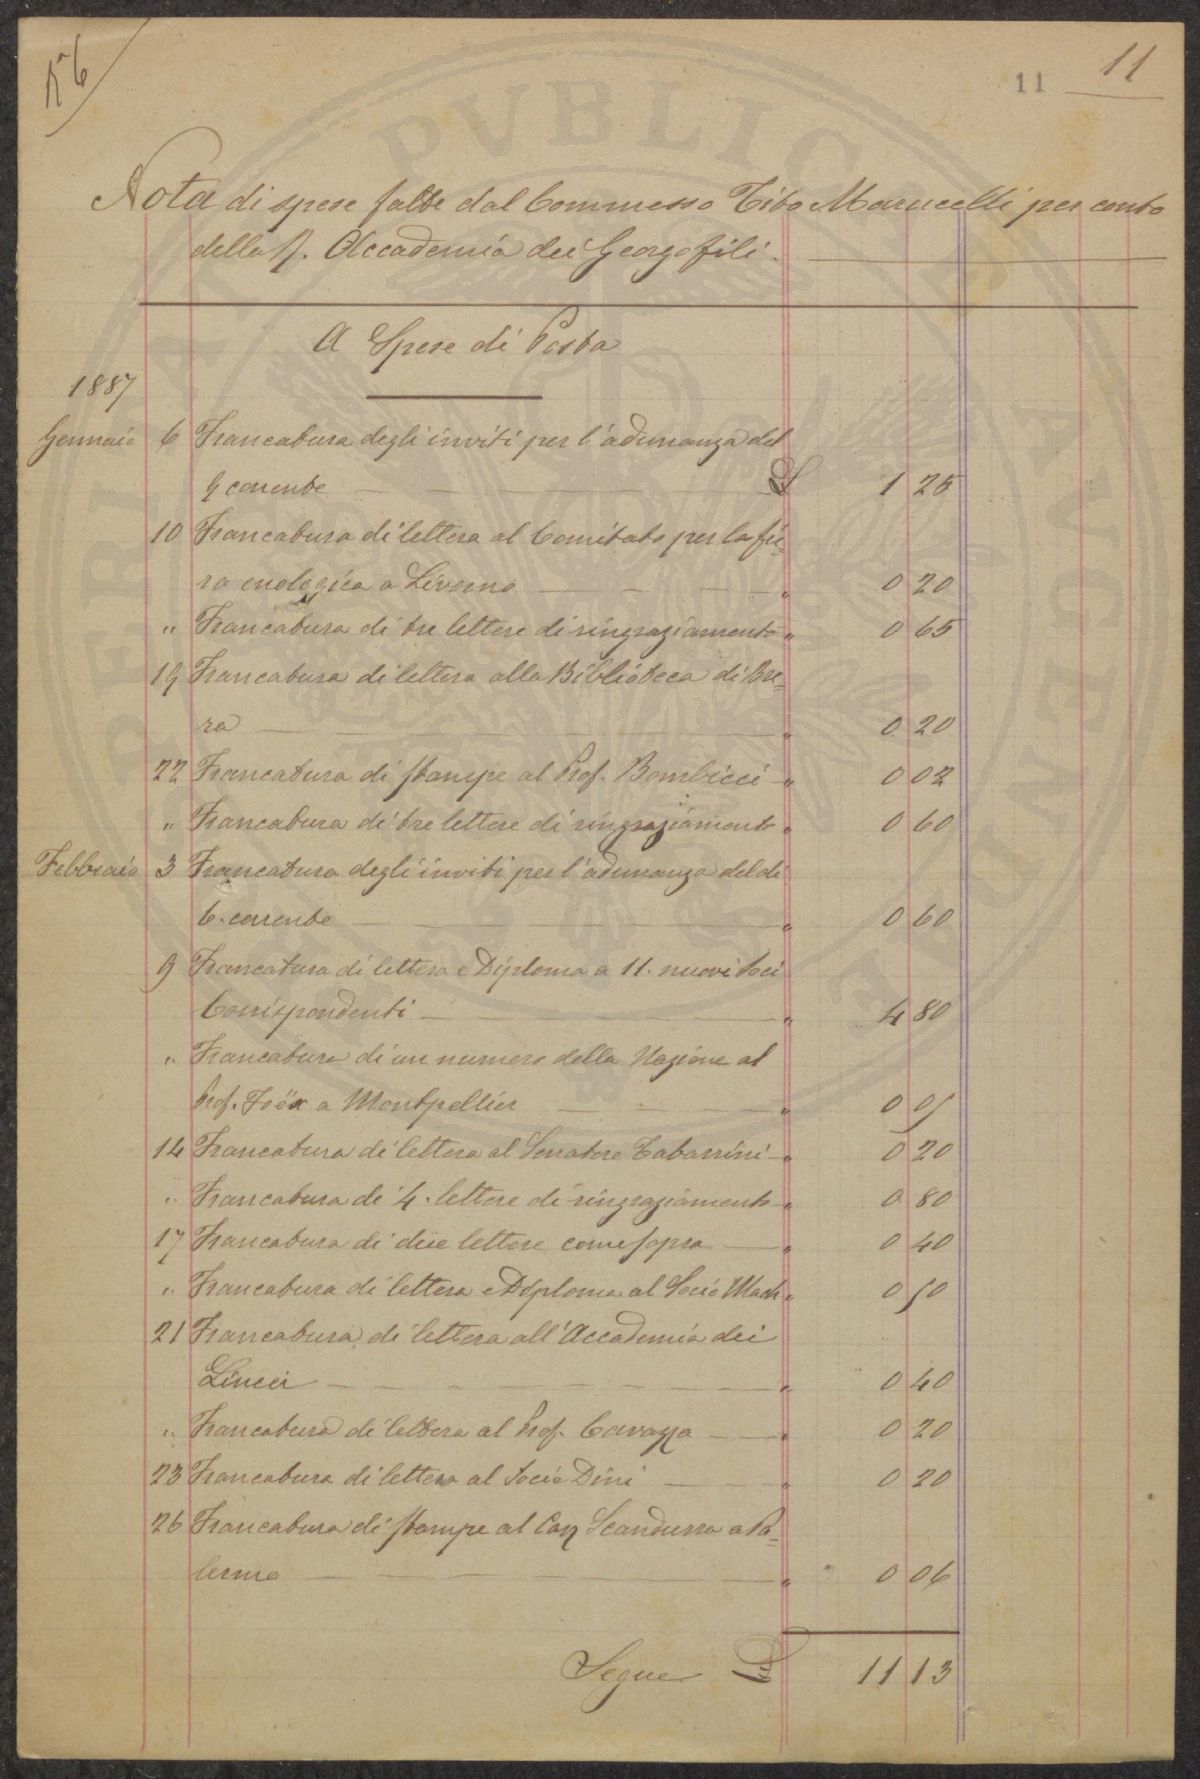 56
11 11
Nota di spese fatte dal Commesso Tito Marucelli per conto
della R. Accademia dei Georgofili.
A Spese di Posta
1887
Gennaio 6 Francatura degli inviti per l'adunanza del
9 corrente £ 1 25
10 Francatura di lettera al Comitato per la fie=
ra enologica a Livorno " 0 20
" Francatura di tre lettere di ringraziamento " 0 65
19 Francatura di lettera alla Biblioteca di Bre=
ra " 0 20
22 Francatura di stampe al Prof. Bombicci " 0 02
" Francatura di tre lettere di ringraziamento " 0 60
Febbraio 3 Francatura degli inviti per l'adunanza del di
6. corrente " 0 60
9 Francatura di lettera e Diploma a 11. nuovi Soci
Corrispondenti " 4 80
" Francatura di un numero della Nazione al
Prof. Foëx a Montpellier " 0 05
14 Francatura di lettera al Senatore Tabarrini " 0 20
" Francatura di 4. lettere di ringraziamento " 0 80
17 Francatura di due lettere come sopra " 0 40
" Francatura di lettera e Diploma al Socio Mach " 0 50
21 Francatura di lettera all'Accademia dei
Lincei " 0 40
" Francatura di lettera al Prof. Cavazza " 0 20
23 Francatura di lettera al Socio Dini " 0 20
26 Francatura di stampe al Cav Scandurra a Pa=
lermo " 0 06
Segue £ 11 13